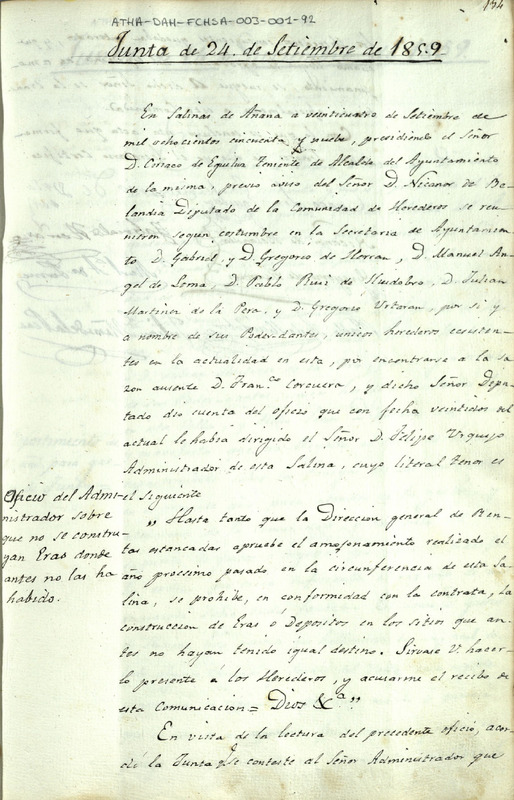 ATHA-DAH-FCHSA-003-001-92
Junta de 24. de Setiembre de 1859
En Salinas de Añana a veinticuatro de Setiembre de
mil ochocientos cincuenta y nueve, presidiendo el Señor
D. Ciriaco de Eguiluz Teniente de Alcalde del Ayuntamiento
de la misma, previo aviso del Señor D. Nicanor de Be-
landia Diputado de la Comunidad de Herederos se reu-
nieron segun costumbre en la Secretaria de Ayuntamien-
to D. Gabriel y D. Gregorio de Herran, D. Manuel An-
gel de Lema, D. Pablo Ruiz de Huidobro, D. Julian
Martinez de la Pera, y D. Gregorio Urtaran, por si y
a nombre de sus Poder-dantes, únicos herederos ecsisten-
tes en la actualidad en esta, por encontrarse a la sa-
zon ausente D. Franco. Corcuera, y dicho Señor Dipu-
tado dio cuenta del oficio que con fecha veintidos del
actual le habia dirigido el Señor D. Felipe Urquijo
Administrador de esta Salina, cuyo literal tenor es
el siguiente
Oficio del Admi-
nistrador sobre
que no se constru-
yan Eras donde
antes no las ha
habido.
" Hasta tanto que la Direccion general de Ren-
tas estancadas apruebe el amojonamiento realizado el
año procsimo pasado en la circunferencia de esta Sa-
lina, se prohibe, en conformidad con la contrata, la
construccion de Eras ó Depositos en los sitios que an-
tes no hayan tenido igual destino. Sirvase V. hacer-
lo presente á los Herederos, y acusarme el recibo de
esta Comunicacion = Dios &a "
En vista de la lectura del precedente oficio, acor-
dó la Junta se conteste al Señor Administrador que